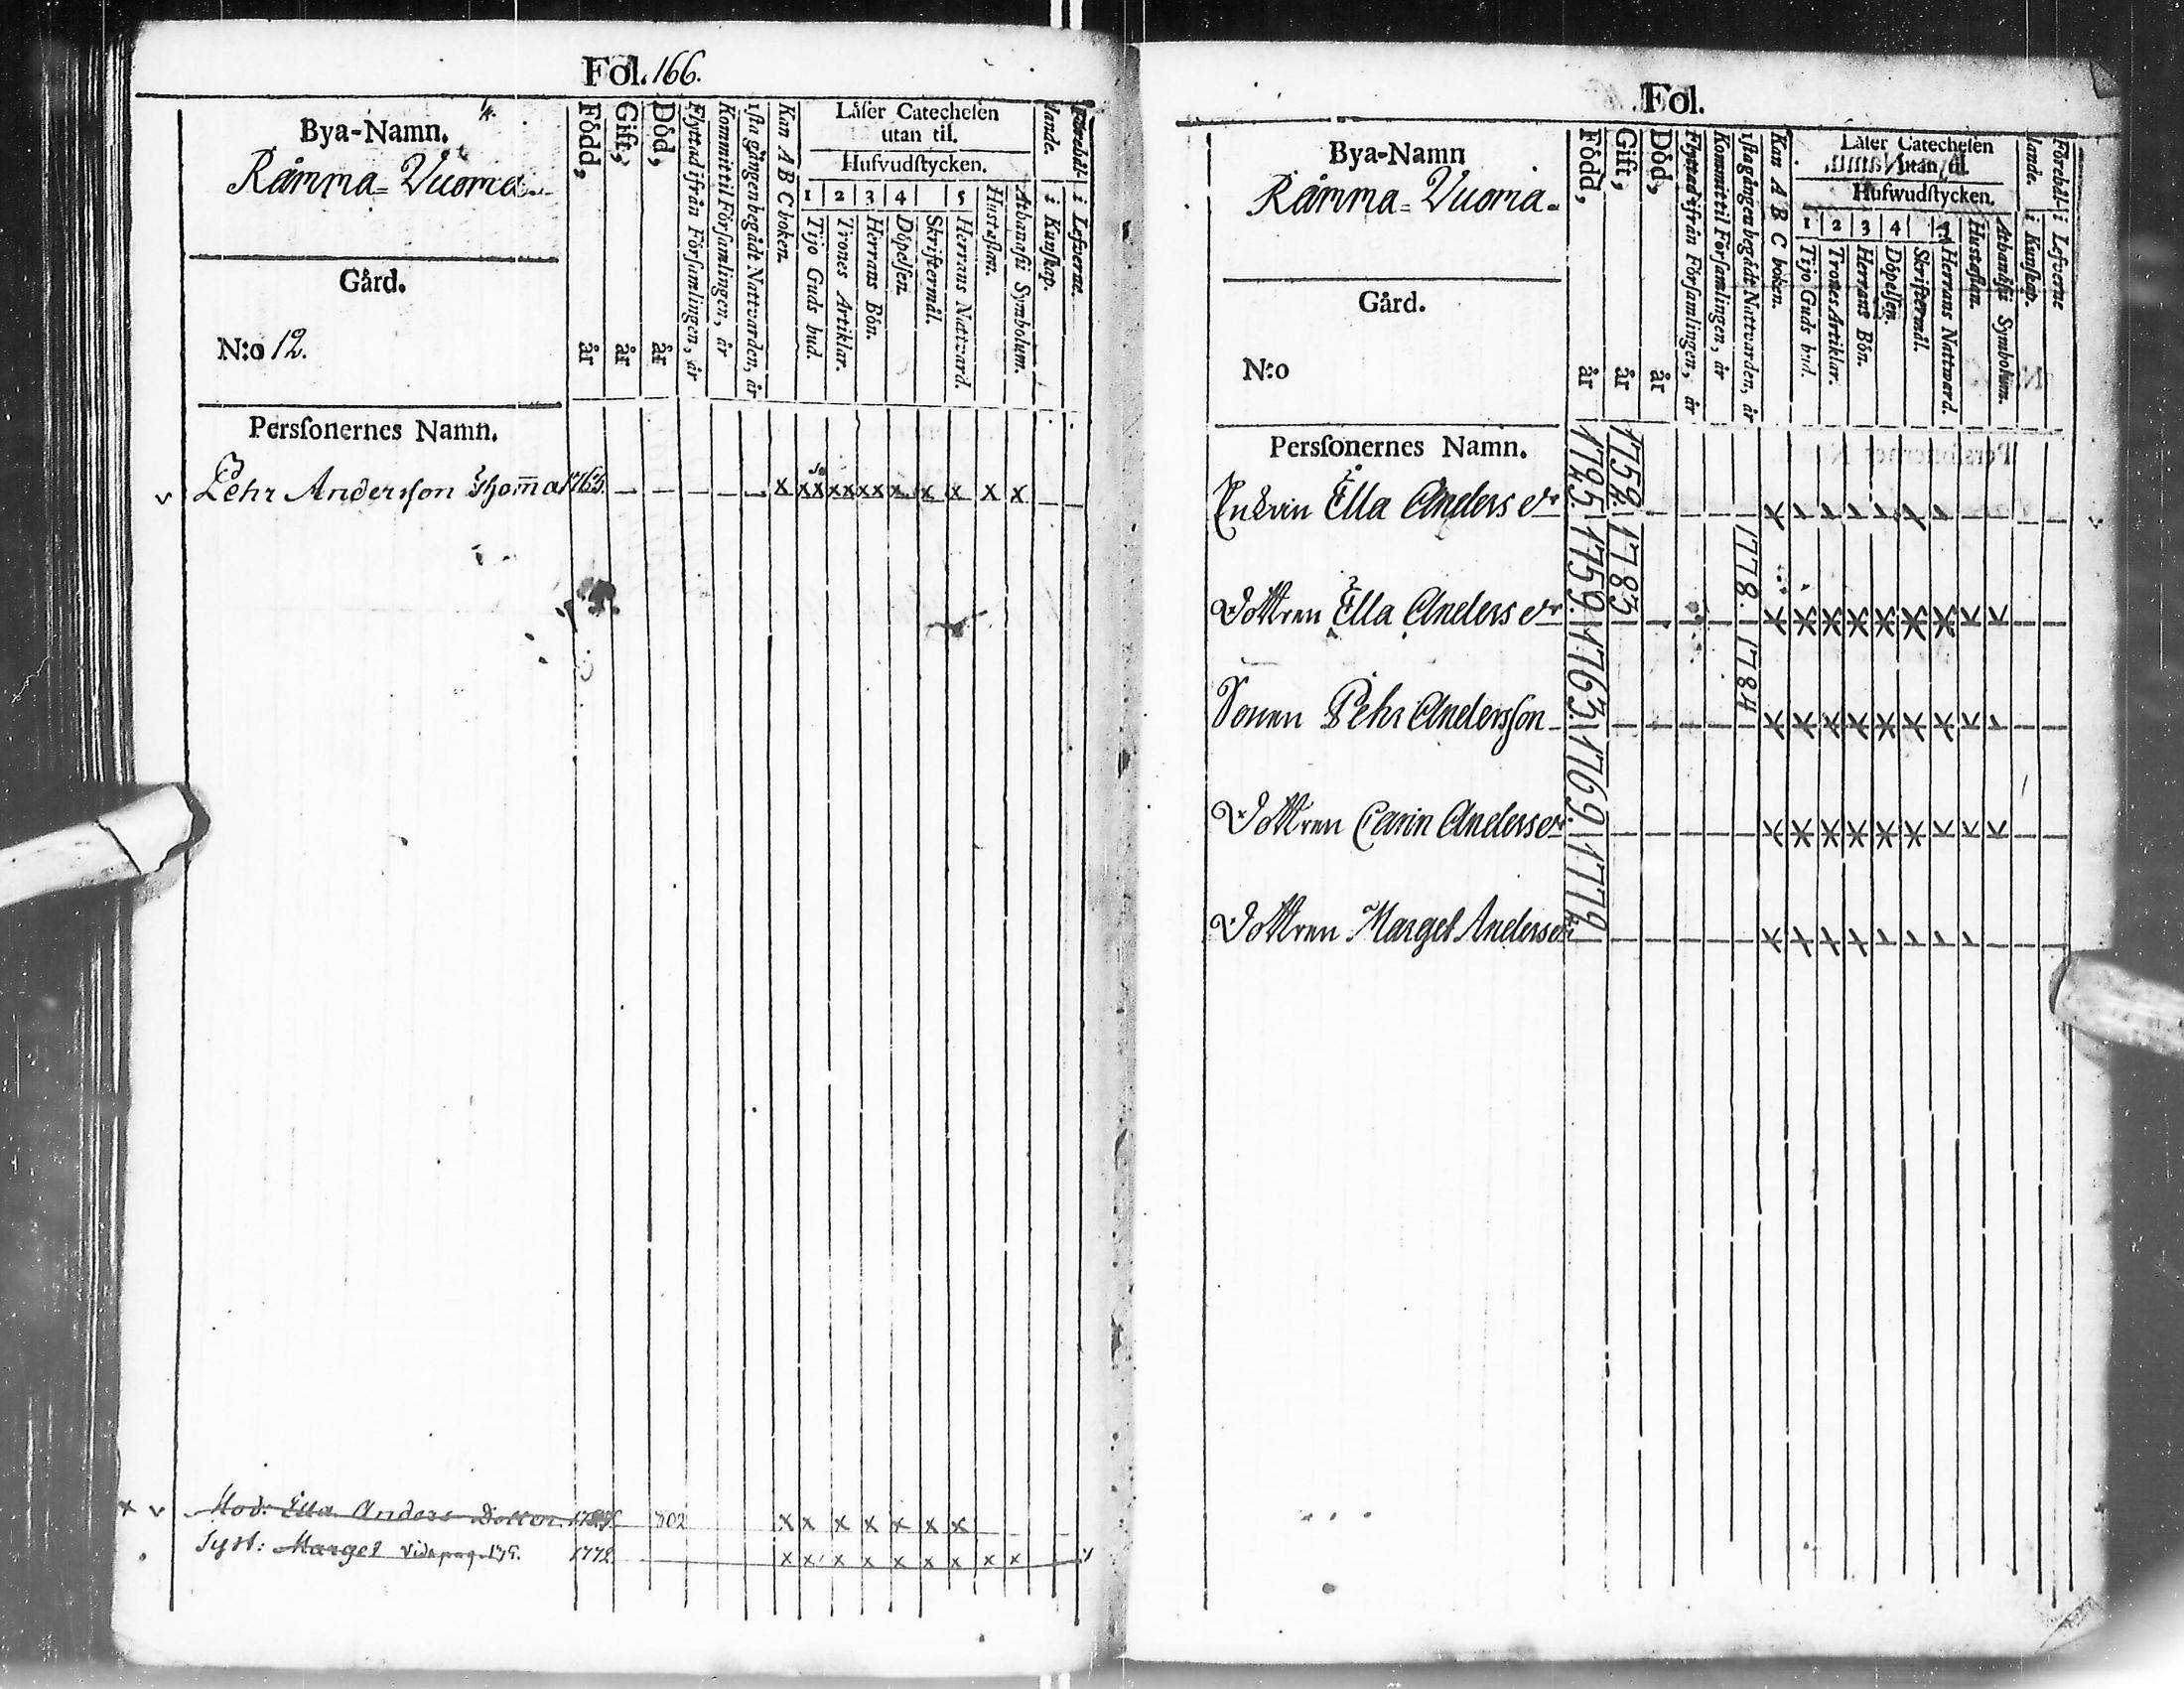 Fol. 166.
Bya-Namn.
Råmma=Vuoma.
Gård.
N:o 12.
Född, år
Gift, år
Död, år
Flyttad ifrån Församlingen, år
Kommit til Församlingen, år
1sta gången begådt Nattvarden, år
Kan A B C boken.
Låser Catechesen
utan til.
Hufvudstycken.
1 2 3 4 5
Tijo Guds bud.
Trones Artiklar.
Herrans Bön.
Döpelsen.
Skriftermål.
Herrans Nattvard.
Hustaflan.
Athanasii Symbolum.
Förehållande.
i Kunskap.
i Lefverne.
Perssonernes Namn.
v Pehr Andersson Thoma 1763. x xx xx xx x x x x x
x v Mod: Ella Anders Dotter 802 x x x x x x x
Syst: Marget vide pag. 179. 1772 x x x x x x x x x
Fol.
Bya-Namn
Råmma=Vuoma.
Gård.
N:o
Född, år
Gift, år
Död, år
Flyttad ifrån Församlingen, år
Kommit til Församlingen, år
1sta gången begådt Nattvarden, år
Kan A B C boken.
Låser Catechesen
utan til.
Hufwudstycken.
1 2 3 4
Tijo Guds bud.
Trones Artiklar.
Herrans Bön.
Döpelsen.
Skriftermål.
Herrans Nattward.
Hustaflan.
Athanasii Symbolum.
Förehållande.
i Kunskap.
i Lefverne
Perssonernes Namn.
Enkan Ella Anders dr 1725. 1752.
Dottren Ella Anders dr 1759. 1783 1778.
Sonen Pehr Andersson 1763. 1784
Dottren Carin Anders dr 1769.
Dottren Marget Anders dr 1779